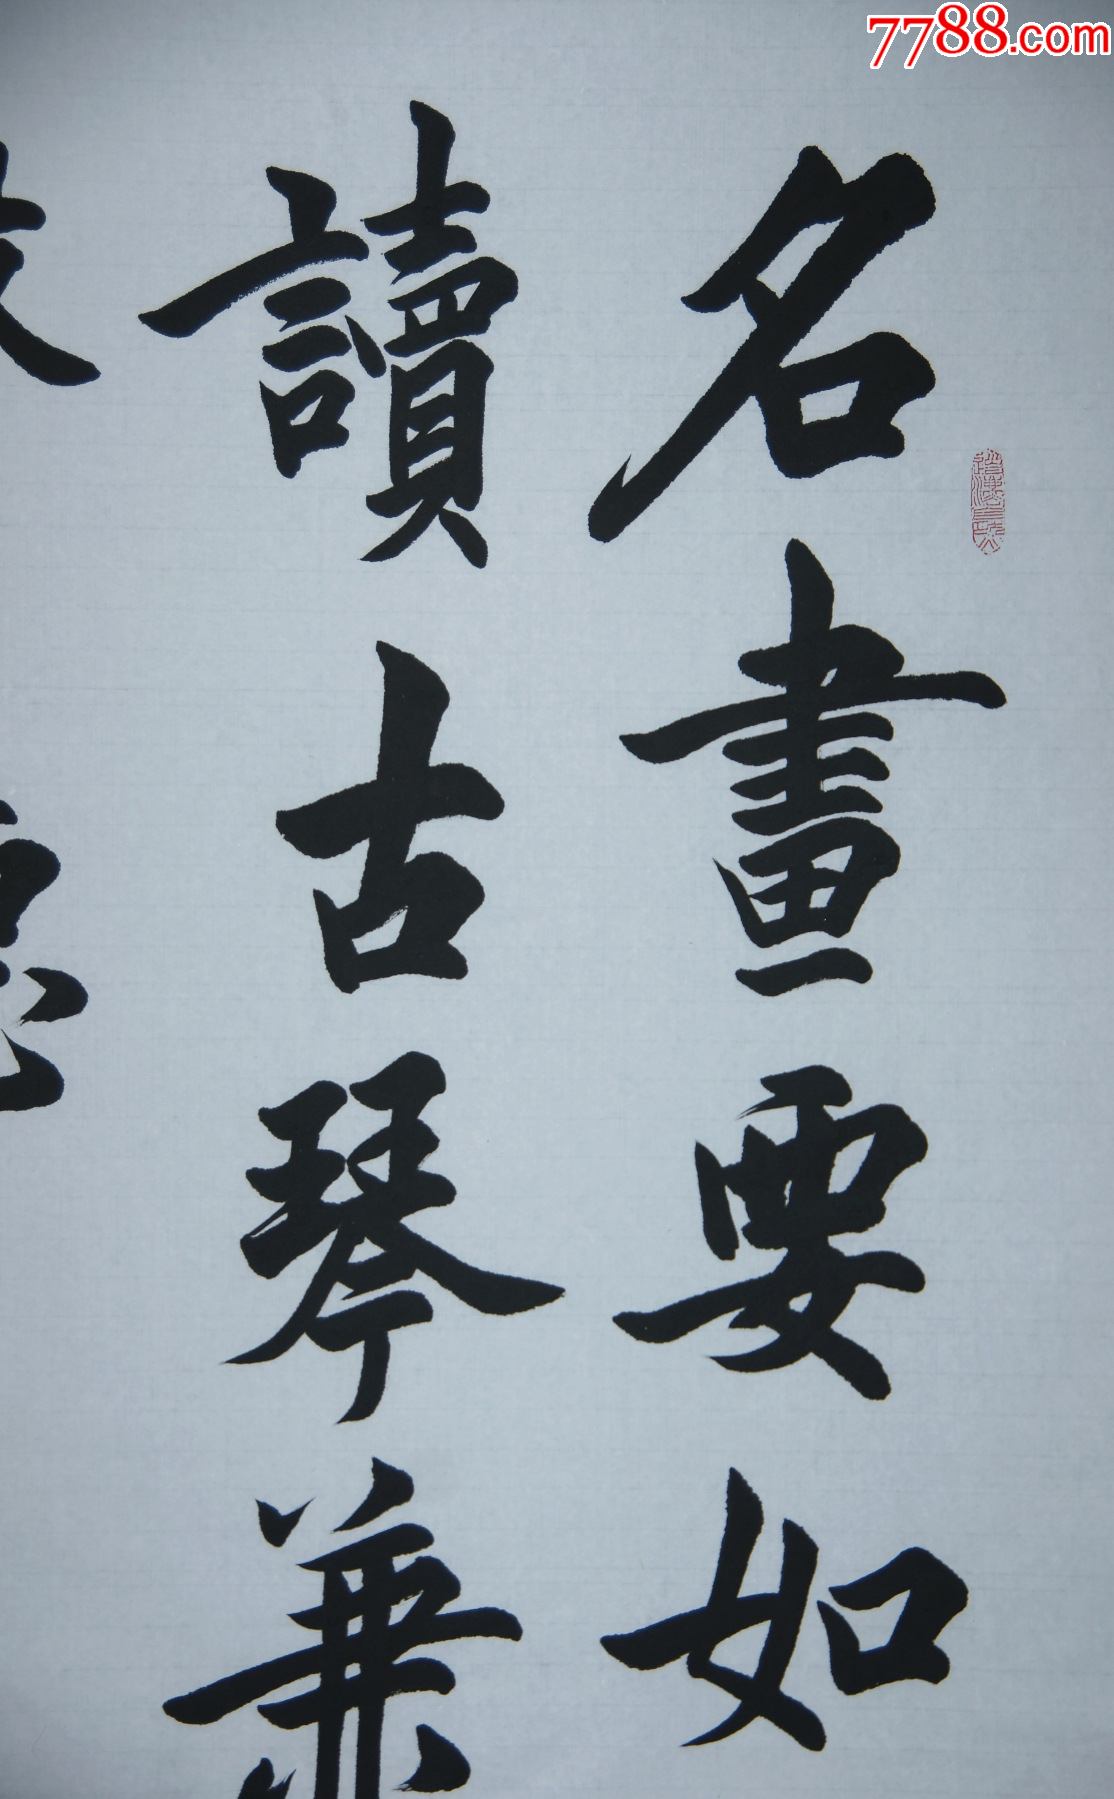 7788.com
名畫要如
讀古琴兼